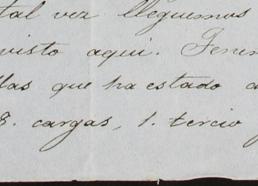 tal vez lleguemos
visto aqui.
que ha estado
cargas, 1. tercio